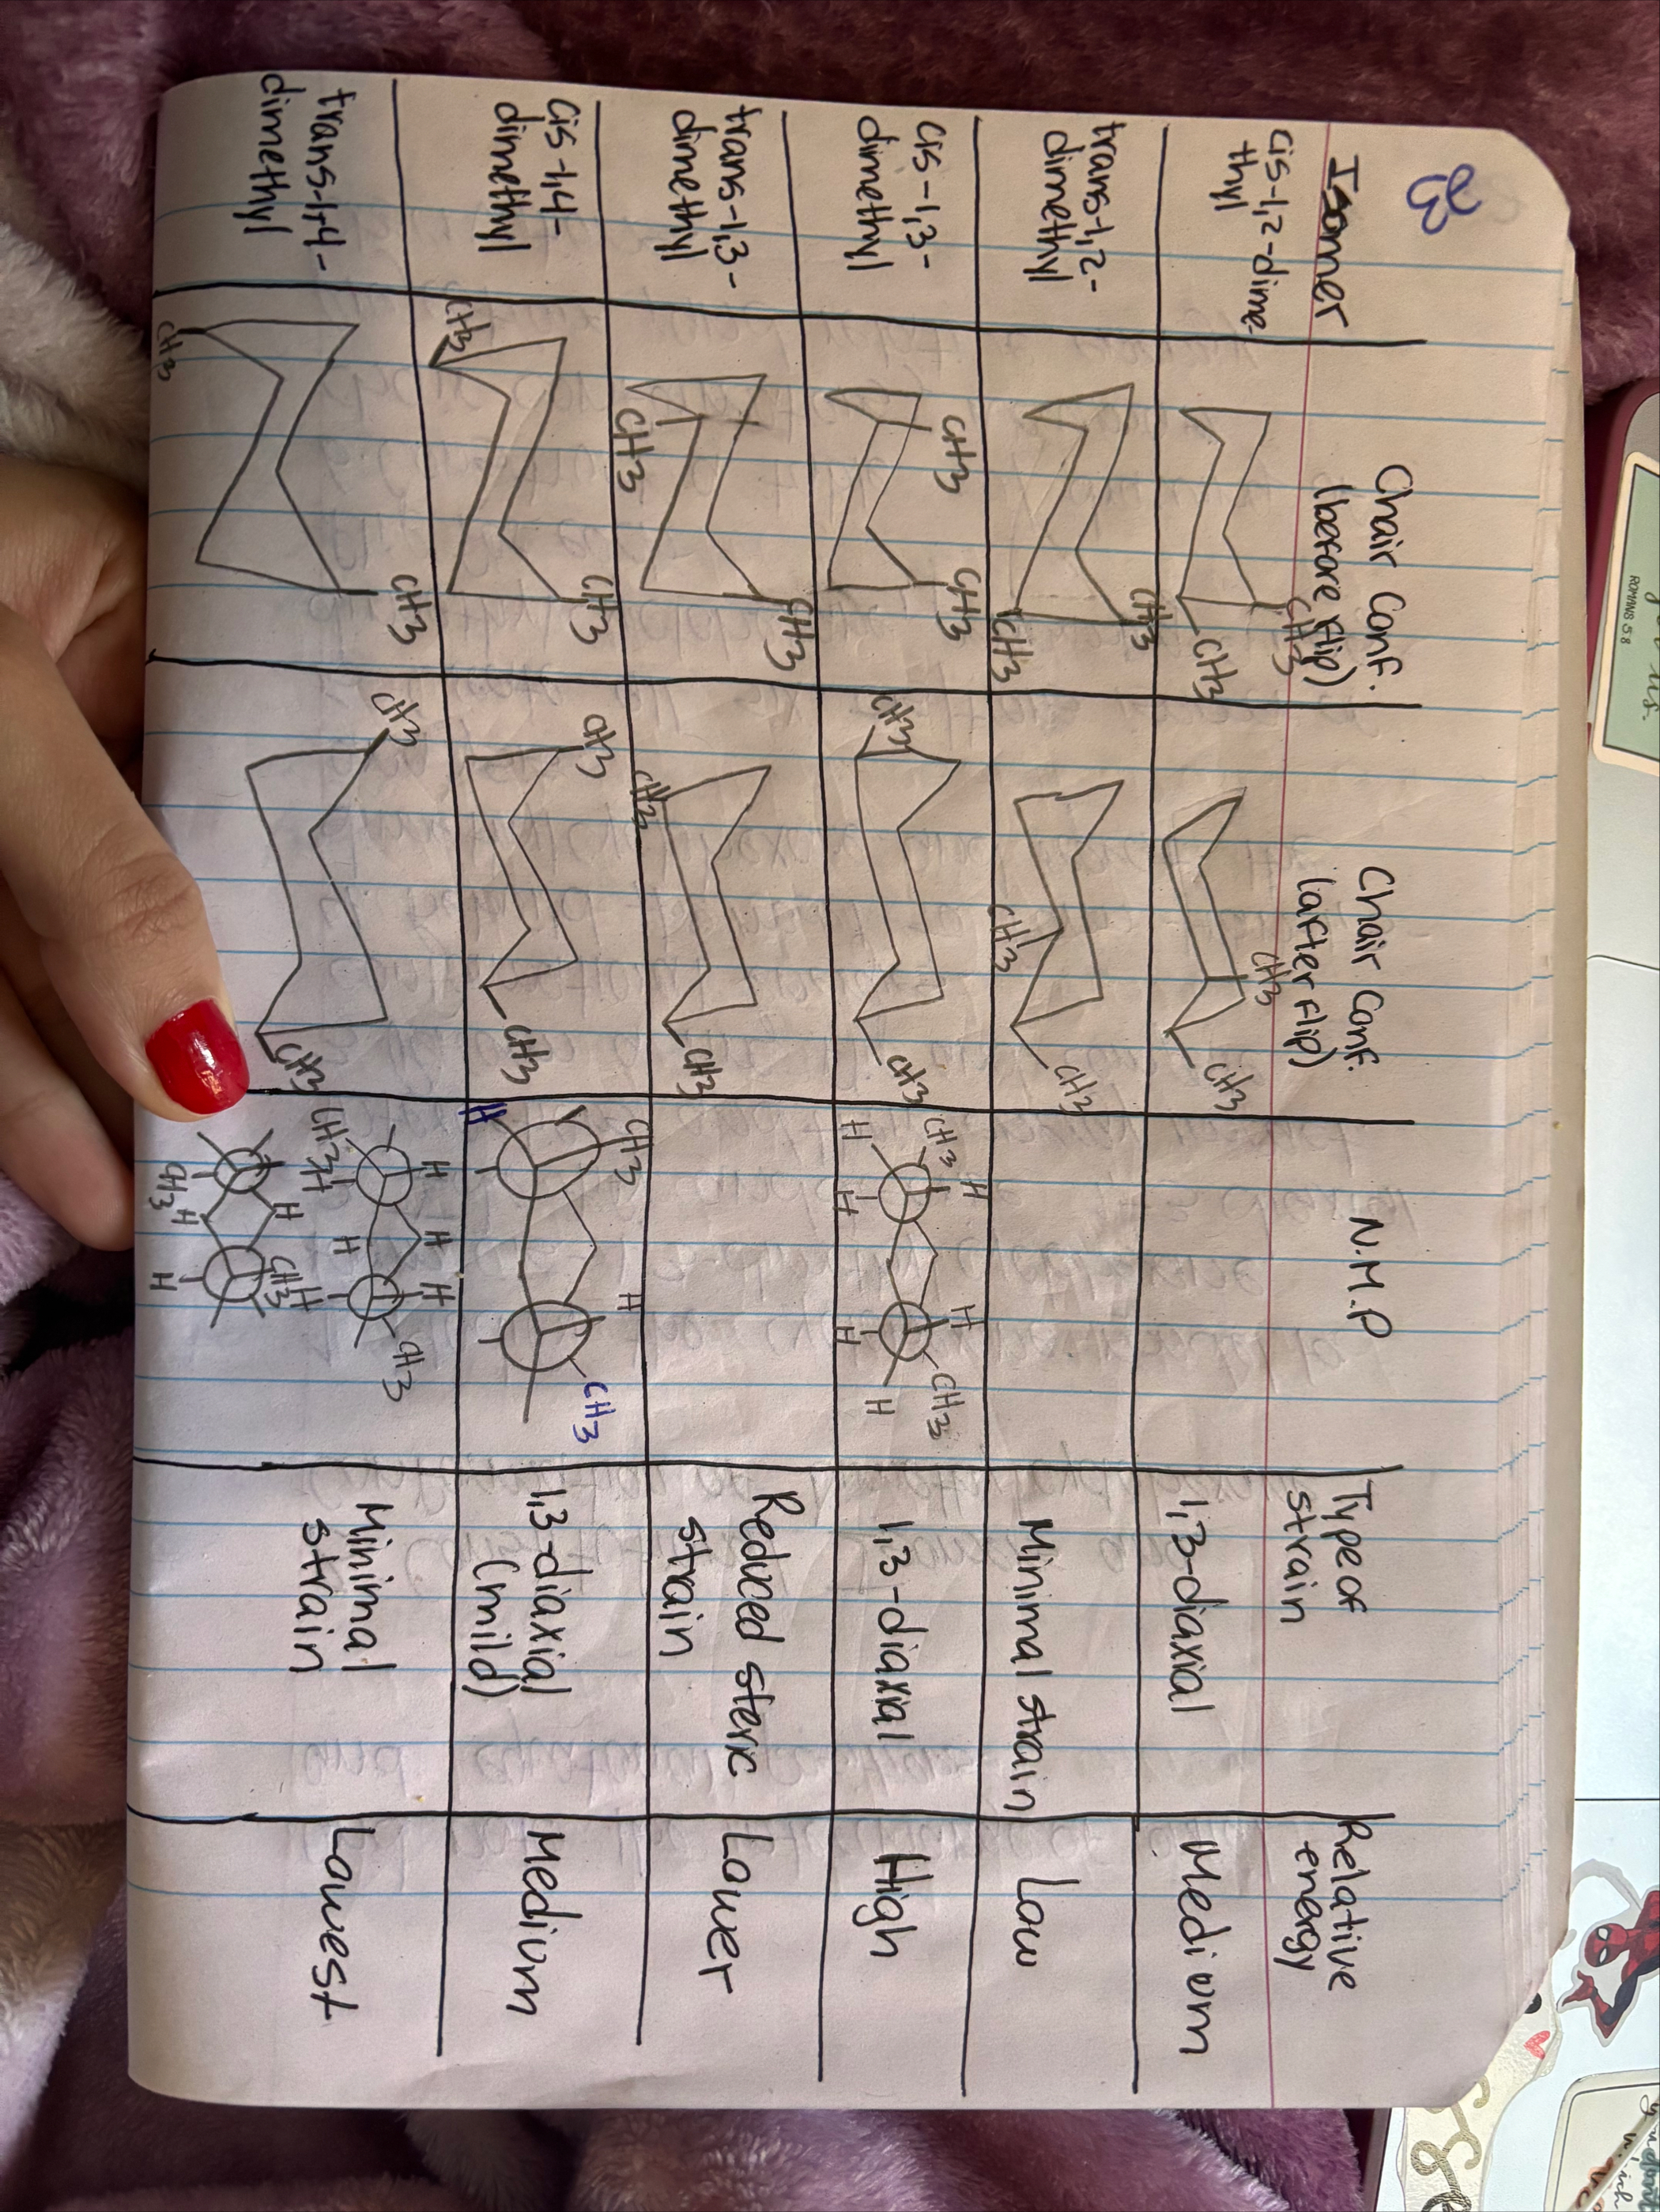 23
Isomer
Chair conf.
(before flip)
Chair conf.
(after flip)
N.M.P
Type of
strain
Relative
energy
cis-1,2-dime
thyl
CH3
CH3
CH3
CH3
1,3-diaxial
Medium
trans-1,2-
dimethyl
CH3
CH3
CH3
CH3
Minimal strain
Low
cis-1,3-
dimethyl
CH3
CH3
CH3
CH3
CH3
H
H
H
H
H
CH3
H
1,3-diaxial
High
trans-1,3-
dimethyl
CH3
CH3
CH3
CH3
Reduced steric
strain
Lower
cis-1,4-
dimethyl
CH3
CH3
CH3
CH3
CH3
H
H
CH3
1,3-diaxial
(mild)
Medium
trans-1,4-
dimethyl
CH3
CH3
CH3
CH3
H
H
H
CH3
H
H
H
CH3
H
CH3
CH3
H
H
Minimal
strain
Lowest
ROMANS 5:8